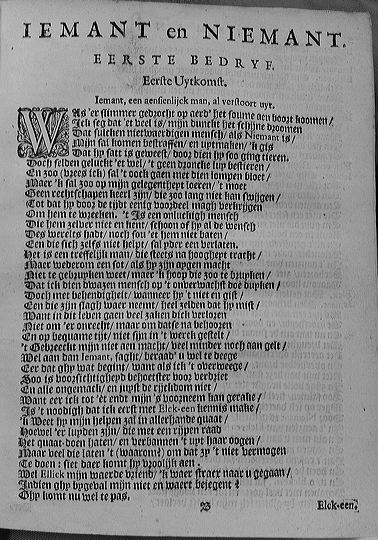 IEMANT en NIEMANT.
EERSTE BEDRYF.
Eerste Uytkomst.
Iemant, een aensienlijck man, al verstoort uyt.
WAs 'er slimmer gedrocht op aerd' het soume aen boort koomen /
Ick seg dat 'et veel is / mijn dunckt het schijne droomen
Dat sulcken nietwaerdigen mensch / als Niemant is /
Mijn sal komen bestraffen / en uptmaken / 'k gis
Dat hy sat is geweest / door dien hy soo ging tieren.
Doch selden geluckt 'er wel / 't geen droncke luy bestieren /
En zoo (vrees ick) sal 't oock gaen met dien lompen bloet /
Maer 'k sal zoo op mijn gelegentheyt loeren / 't moet
Geen rechtschapen keerl zijn / die zoo lang niet kan swijgen /
Tot dat hy door de tijdt eenig voordeel magh verkrijgen
Om hem te wreeken. 't Is een onluckigh mensch
Die hem zelver niet en kent / schoon of hy al de wensch
Des werelts hadt / noch sou 'et hem niet baten /
En die sich zelfs niet helpt / sal yder een verlaten.
Het is een treffelijk man / die steets na hooghept tracht /
Maer wederom een sot / als hy zijn eygen macht
Niet te gebruyken weet / maer 'k hoop die zoo te bruyken /
Dat ick dien dwazen mensch op 't onverwachtst doe duyken /
Doch met behendigheyt / wanneer hy 't niet en gist /
En die zijn slagh waer neemt / heel zelden dat hy mist /
Want in dit leven gaen veel zaken dick verloren
Niet om 'er onrecht / maer om datse na behooren
En op bequame tijt / niet zijn in 't werck gestelt /
't Gebreeckt mijn niet aen macht / veel minder noch aen gelt /
Wel aan dan Iemant, saght / beraad' u wel te deege
Eer dat ghy wat begint / want als ick 't overweege /
Soo is voorsichtigheyd behoetster voor verdriet
En alle ongemack / en juyst de rijckdom niet /
Want eer ick tot 'et endt mijn 's voorneem kan geraken /
Is 't noodigh dat ick eerst met Elck-een kennis make /
'k Weet hy mijn helpen zal in allerhande quaat /
Hoewel 'er luyden zijn / die met een rijpen raad
Het quaat doen haten / en verbannen 't uyt haar oogen /
Maar veel die laten 't (waarom?) om dat zy 't niet vermogen
Te doen: siet daer komt hy vroolijk aen.
Wel Ellick mijn waerde vriend / 'k waer stracx naar u gegaan /
Indien ghy bygeval mijn niet en waert bejegent?
Ghy komt nu wel te pas.
Elck-een.